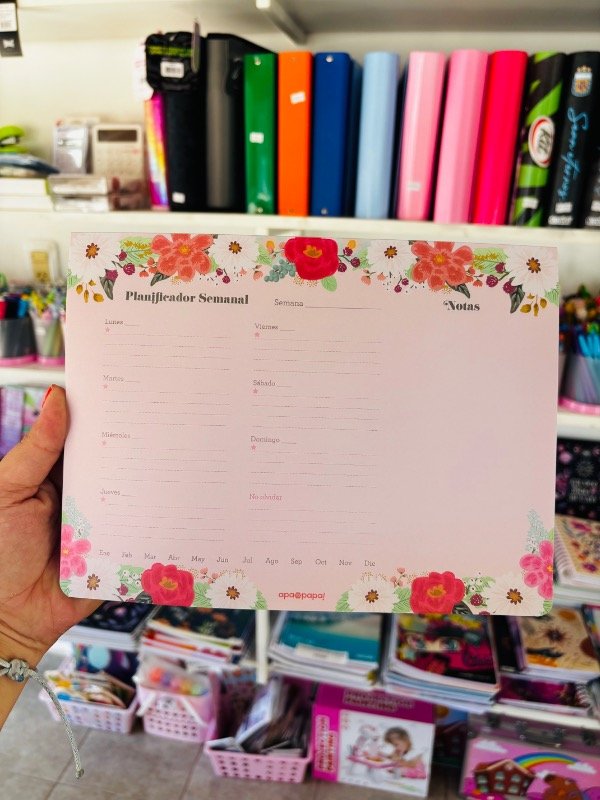 Planificador Semanal
Semana
Notas
Lunes
Viernes
Martes
Sábado
Miércoles
Domingo
Jueves
No olvidar
Ene Feb Mar Abr May Jun Jul Ago Sep Oct Nov Dic
apapapa!